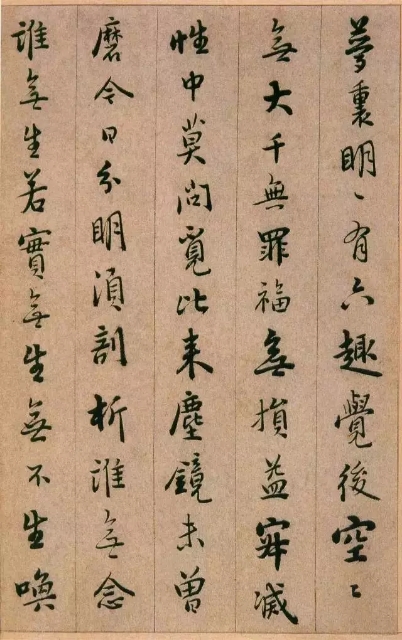 夢裏明〻有六趣覺後空〻
無大千無罪福無損益寂滅
性中莫問覓比来塵鏡未曾
磨今日分明須剖析誰無念
誰無生若實無生無不生喚